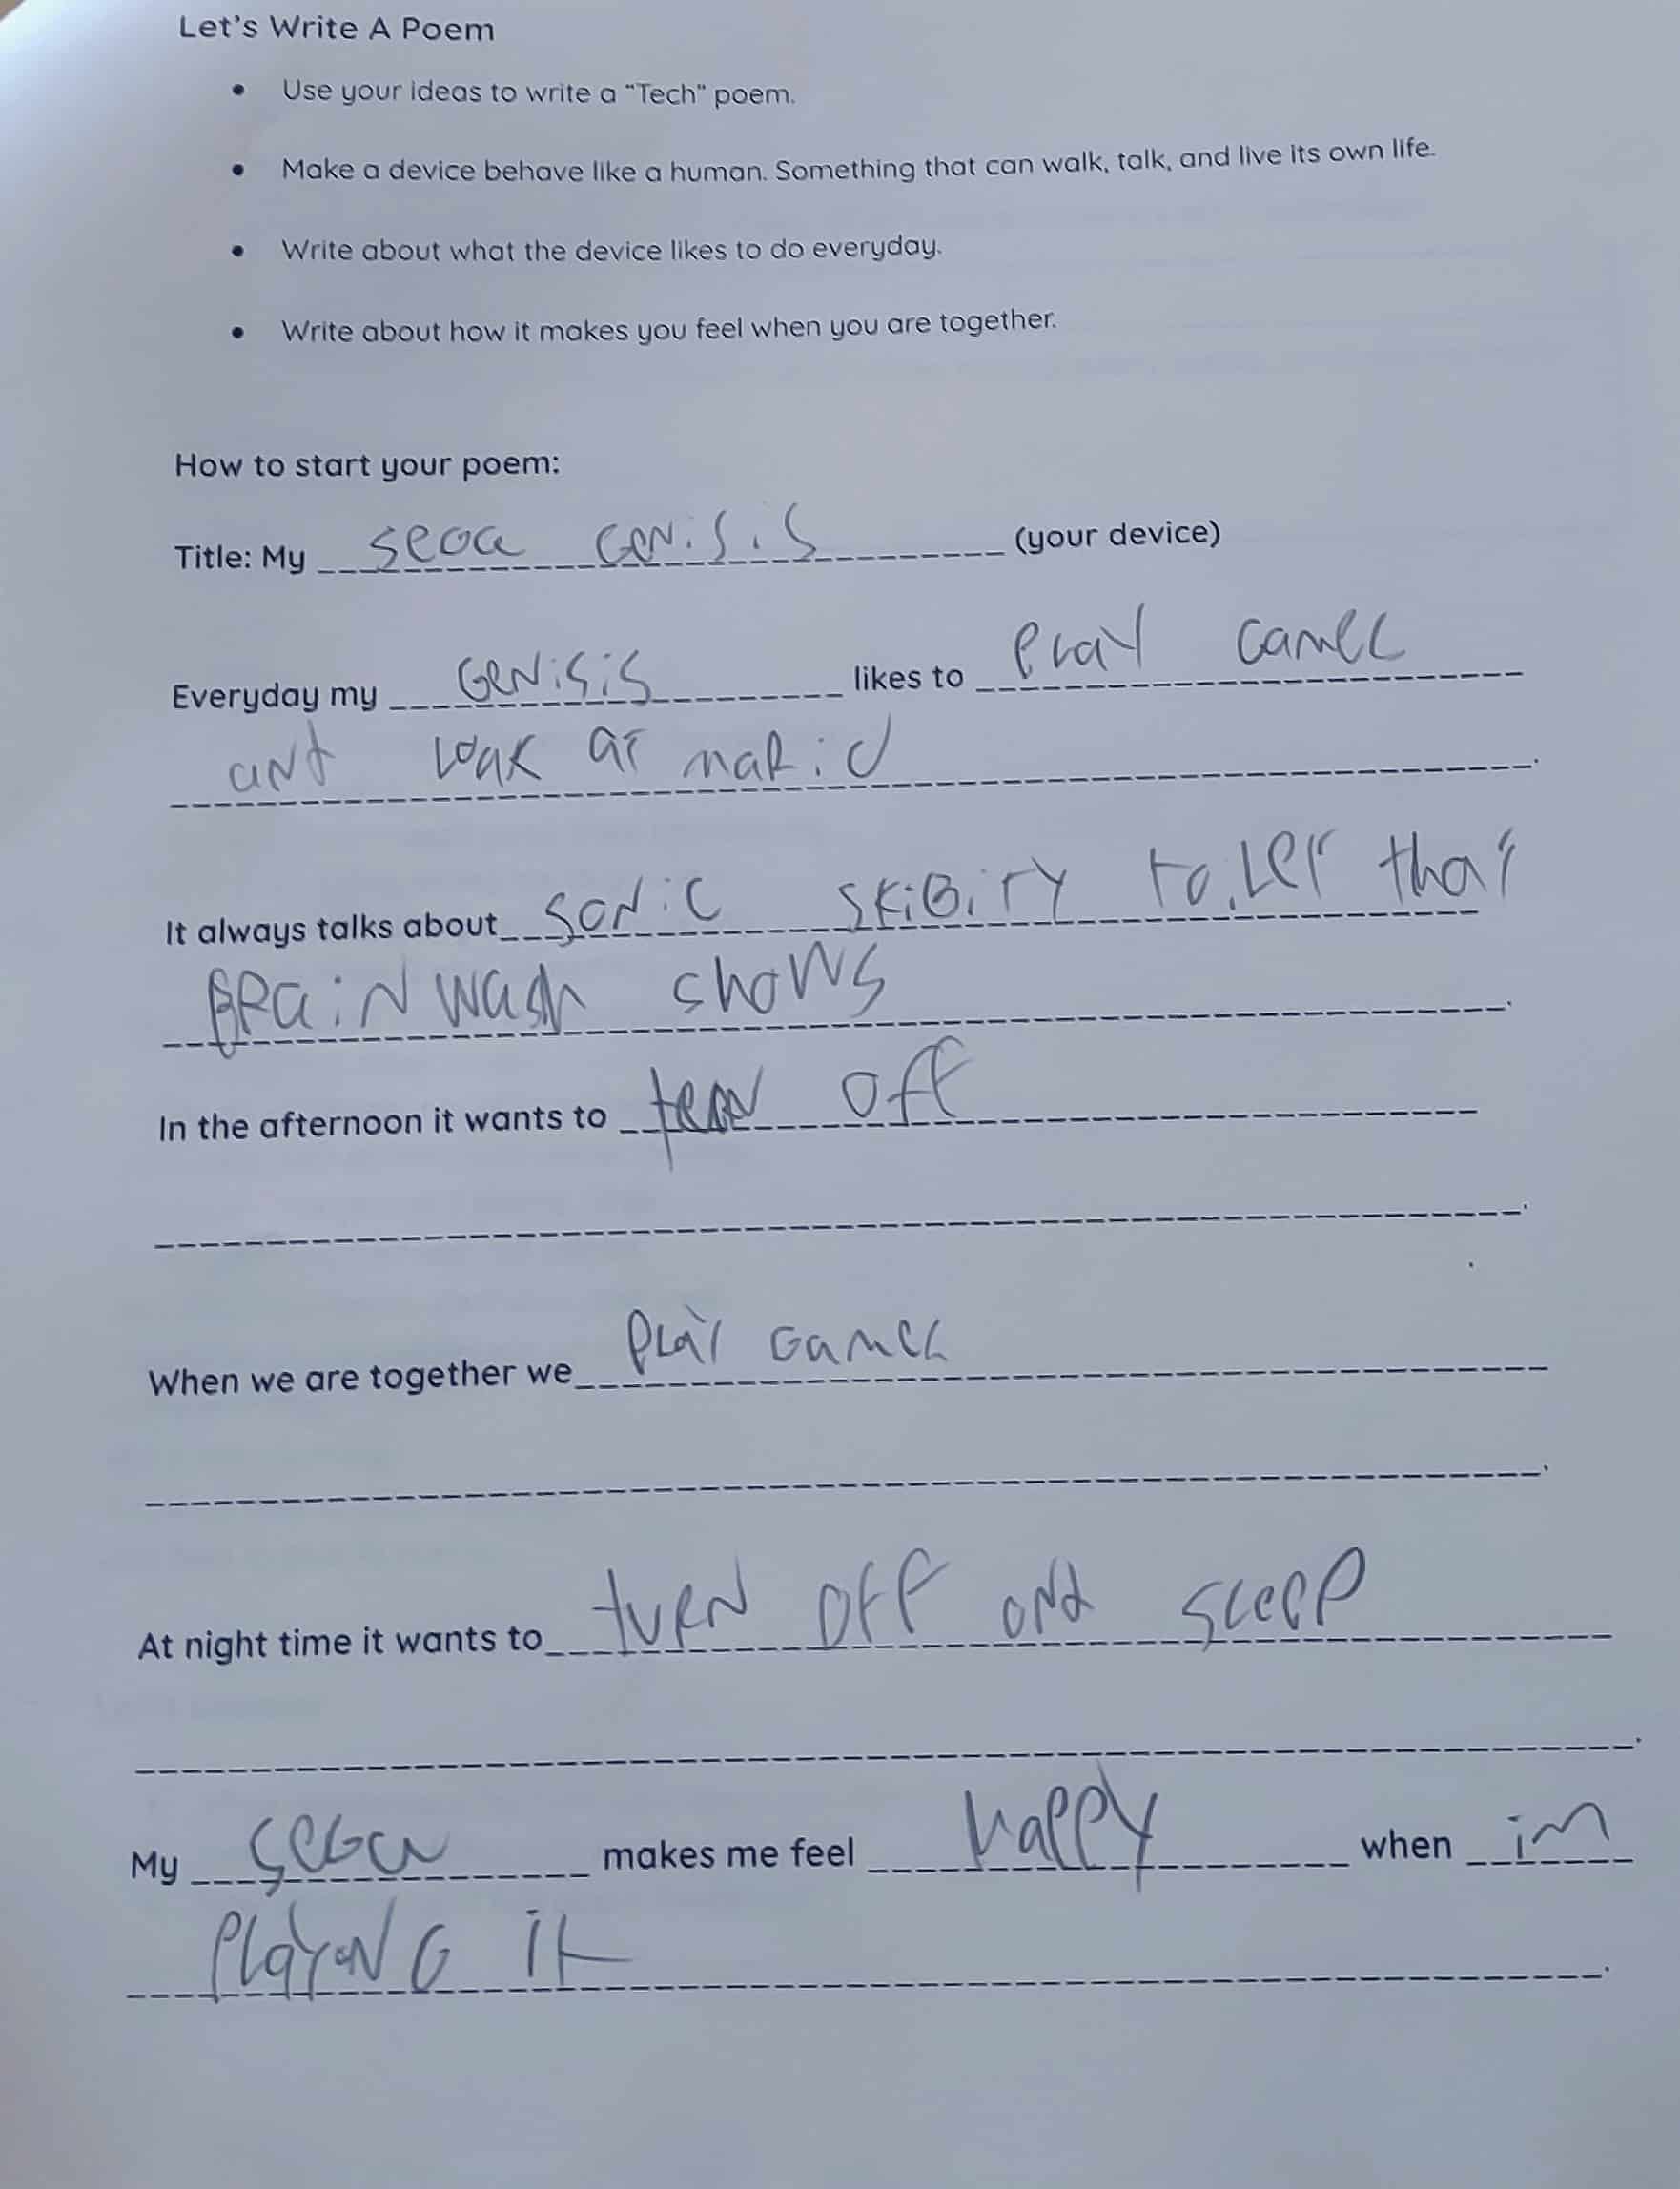 Let's Write A Poem
• Use your ideas to write a "Tech" poem.
• Make a device behave like a human. Something that can walk, talk, and live its own life.
• Write about what the device likes to do everyday.
• Write about how it makes you feel when you are together.
How to start your poem:
Title: My sega GeNiSiS (your device)
Everyday my GeNiSiS likes to Play Games
and look at
It always talks about SONiC SKiBiTY toiLeT that
BRaiNwash shows
In the afternoon it wants to off
When we are together we Play Games
At night time it wants to tURN OFF and SLeeP
My SeGa makes me feel HaPPy when im
PlayiNG it